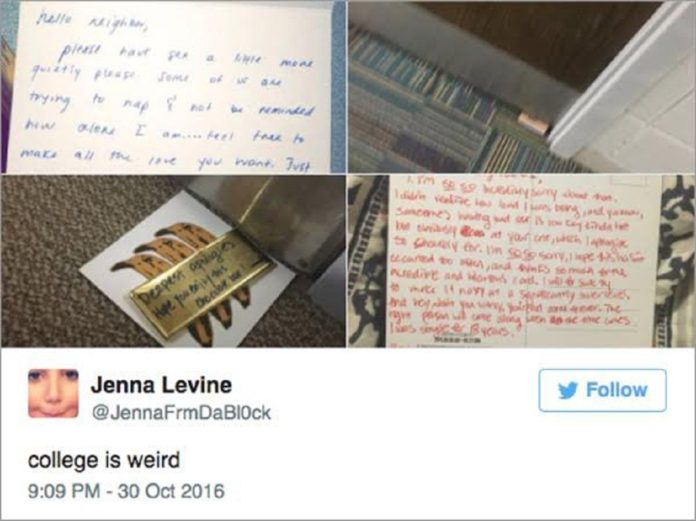 hello neighbor,
please have sex a little more
quietly please some of us are
trying to nap & not be reminded
how alone I am....feel free to
make all the love you want. Just
Deepest apologies
Hope you enjoy this
chocolate bar
I'm so so incredibly sorry about that.
I didn't realize how loud I was being, and
someone's and is low key kinda hot
but obviously at your cost, which I apologize
so profusely for. I'm so so sorry, I hope this hasn't
occurred too often, and thanks so much for the
incredible and hilarious card. I will be sure to
to make it nosy at a significantly
And hey, don't you worry, forever. The
right person will come along when the time comes.
I was single for 18 years.
Jenna Levine
@JennaFrmDaBl0ck
Follow
college is weird
9:09 PM - 30 Oct 2016